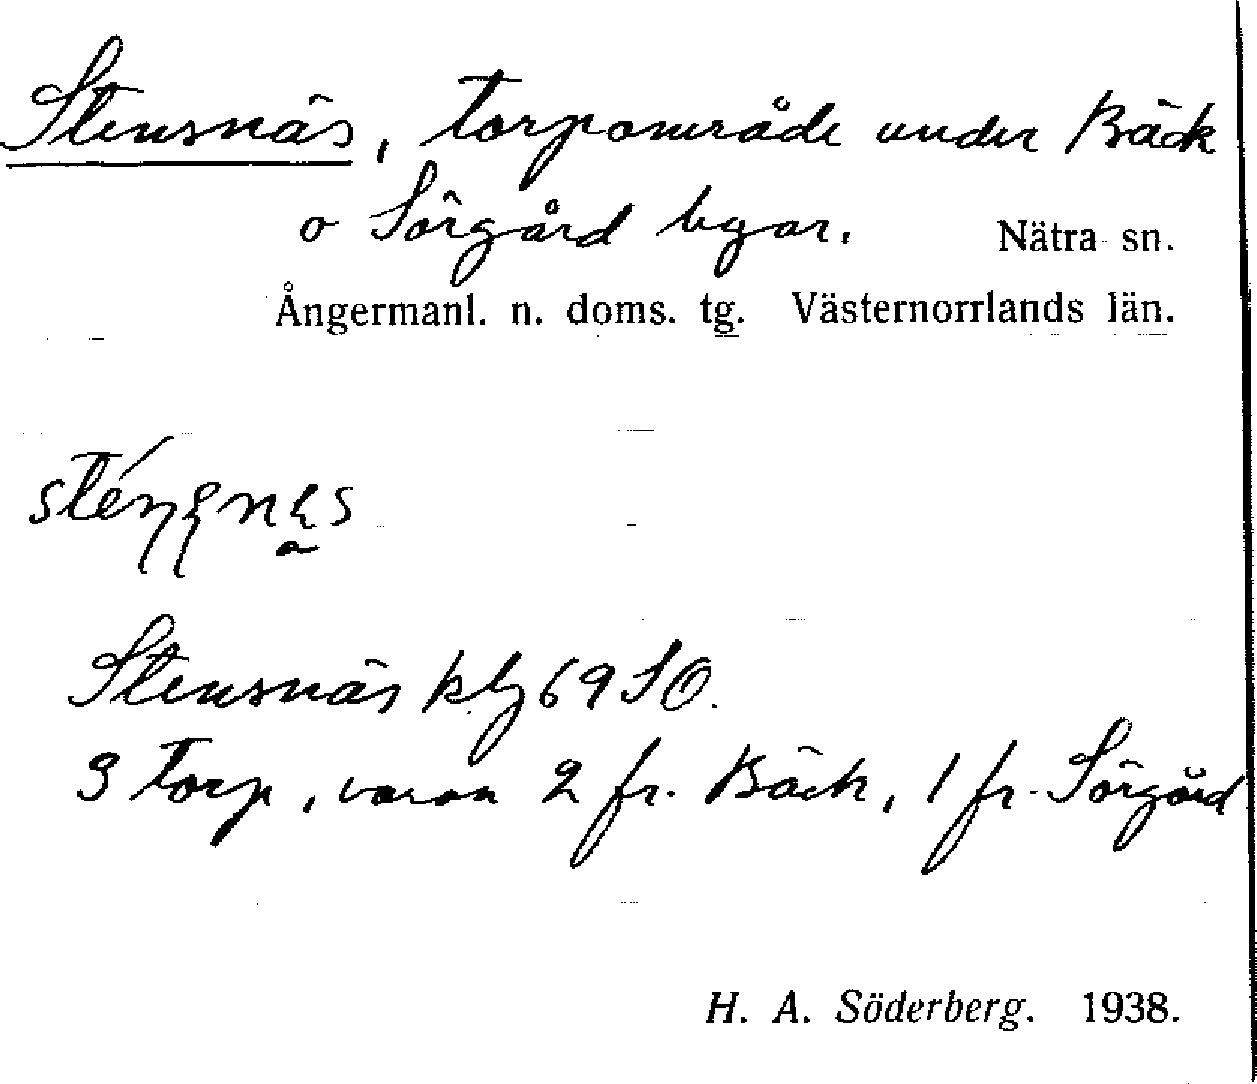 Stensnäs, torpområde under Bäck
o Sörgård byar. Nätra sn.
Ångermanl. n. doms. tg. Västernorrlands län.
Stensnäs kbj 69 SO.
3 torp, varav 2 fr. Bäck, 1 fr. Sörgård
H. A. Söderberg. 1938.